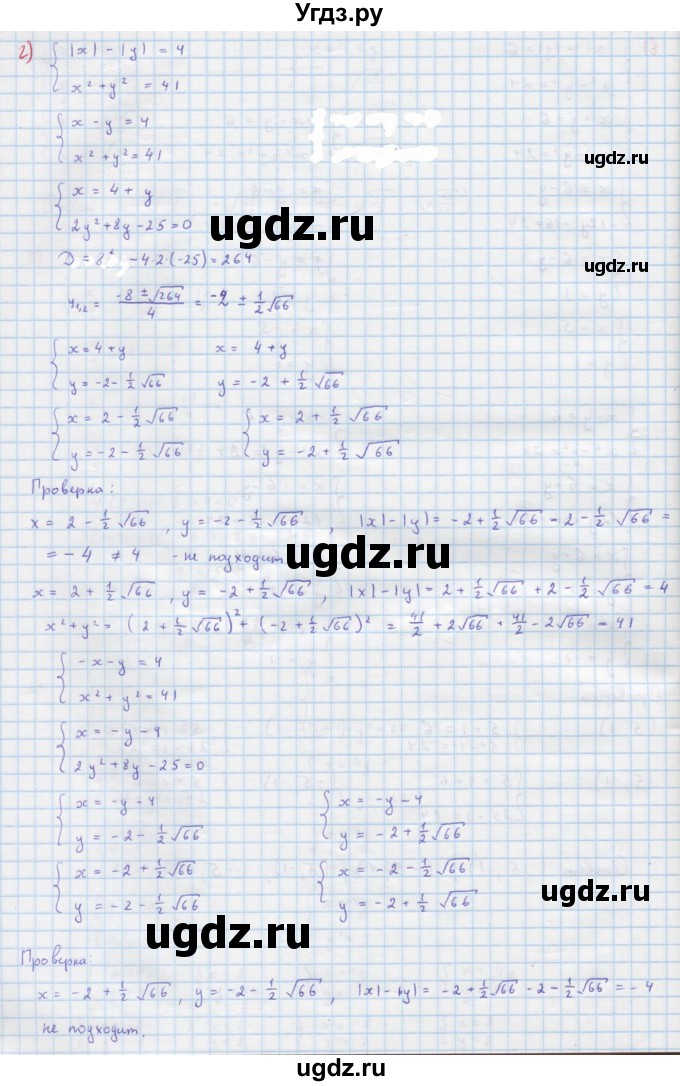 Угдз.ру
2) { |x| - |y| = 4
x² + y² = 41
{ x - y = 4
x² + y² = 41
ugdz.ru
{ x = 4 + y
2y² + 8y - 25 = 0
ugdz.ru
D = 8² - 4·2·(-25) = 264
ugdz.ru
y₁,₂ = (-8 ± √264)/4 = -2 ± 1/2 √66
{ x = 4 + y      x = 4 + y
ugdz.ru
y = -2 - 1/2 √66      y = -2 + 1/2 √66
{ x = 2 - 1/2 √66      { x = 2 + 1/2 √66
y = -2 - 1/2 √66      y = -2 + 1/2 √66
Проверка:
ugdz.ru
x = 2 - 1/2 √66 , y = -2 - 1/2 √66 , |x| - |y| = -2 + 1/2 √66 - 2 - 1/2 √66 =
= -4 ≠ 4 - не подходит
ugdz.ru
x = 2 + 1/2 √66 , y = -2 + 1/2 √66 , |x| - |y| = 2 + 1/2 √66 + 2 - 1/2 √66 = 4
x² + y² = (2 + 1/2 √66)² + (-2 + 1/2 √66)² = 41/2 + 2√66 + 41/2 - 2√66 = 41
{ -x - y = 4
ugdz.ru
x² + y² = 41
{ x = -y - 4
ugdz.ru
2y² + 8y - 25 = 0
{ x = -y - 4      { x = -y - 4
y = -2 - 1/2 √66      y = -2 + 1/2 √66
{ x = -2 + 1/2 √66      { x = -2 - 1/2 √66
ugdz.ru
y = -2 - 1/2 √66      y = -2 + 1/2 √66
ugdz.ru
Проверка:
x = -2 + 1/2 √66 , y = -2 - 1/2 √66 , |x| - |y| = -2 + 1/2 √66 - 2 - 1/2 √66 = -4
не подходит.
ugdz.ru
ugdz.ru